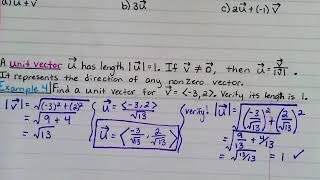 a) u⃗ + v⃗ b) 3u⃗ c) 2u⃗ + (-1) v⃗
A unit vector u⃗ has length |u⃗| = 1. If v⃗ ≠ 0⃗, then u⃗ = v⃗/|v⃗|.
It represents the direction of any nonzero vector.
Example 4 Find a unit vector for v⃗ = <-3, 2>. Verify its length is 1.
|v⃗| = √((-3)² + (2)²)
= √(9 + 4)
= √13
u⃗ = <-3, 2>/√13
u⃗ = <-3/√13, 2/√13>
verify! |u⃗| = √((-3/√13)² + (2/√13)²)
= √(9/13 + 4/13)
= √(13/13) = 1 ✓